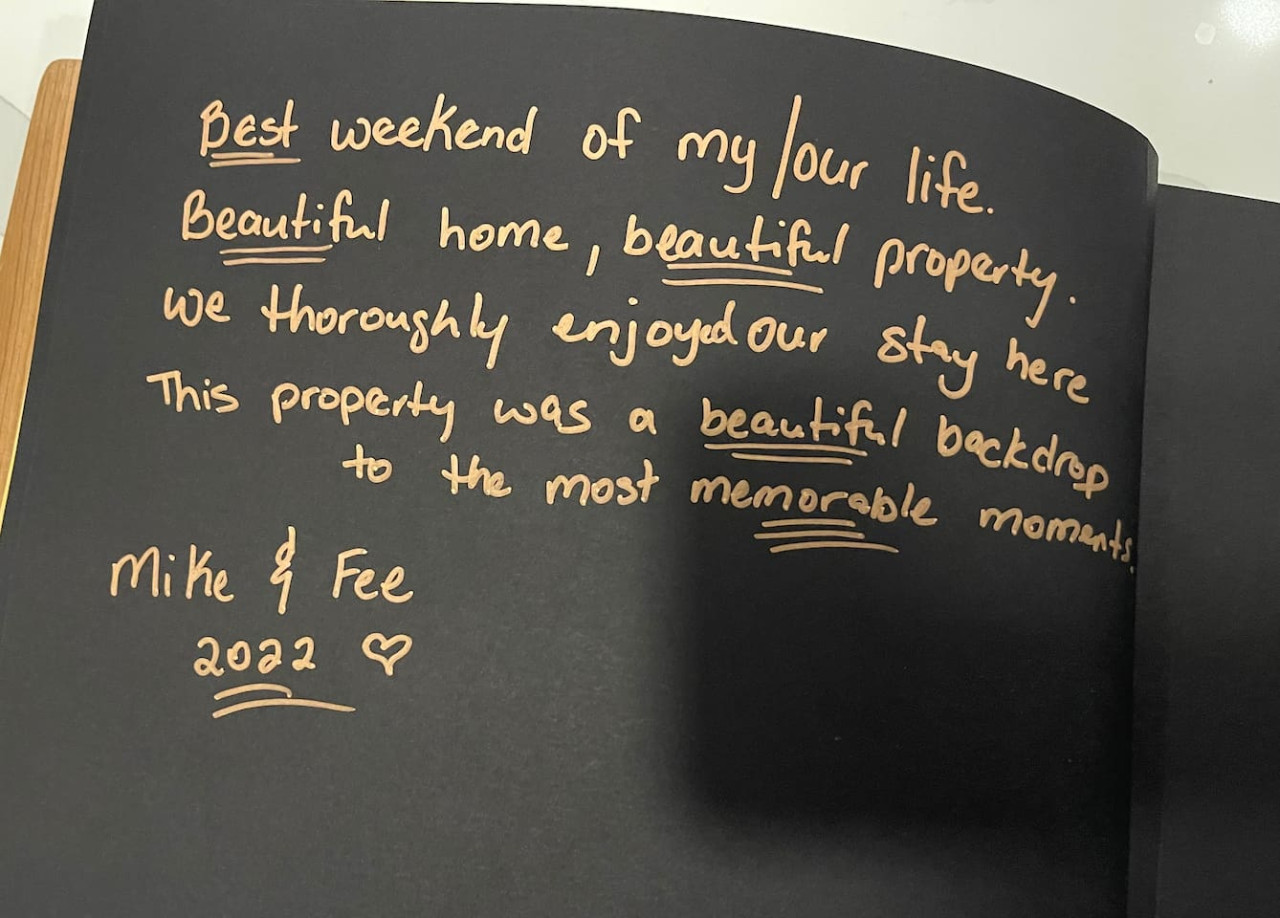 Best weekend of my/our life.
Beautiful home, beautiful property.
we thoroughly enjoyed our stay here
This property was a beautiful backdrop
to the most memorable moments.
Mike & Fee
2022 ♡